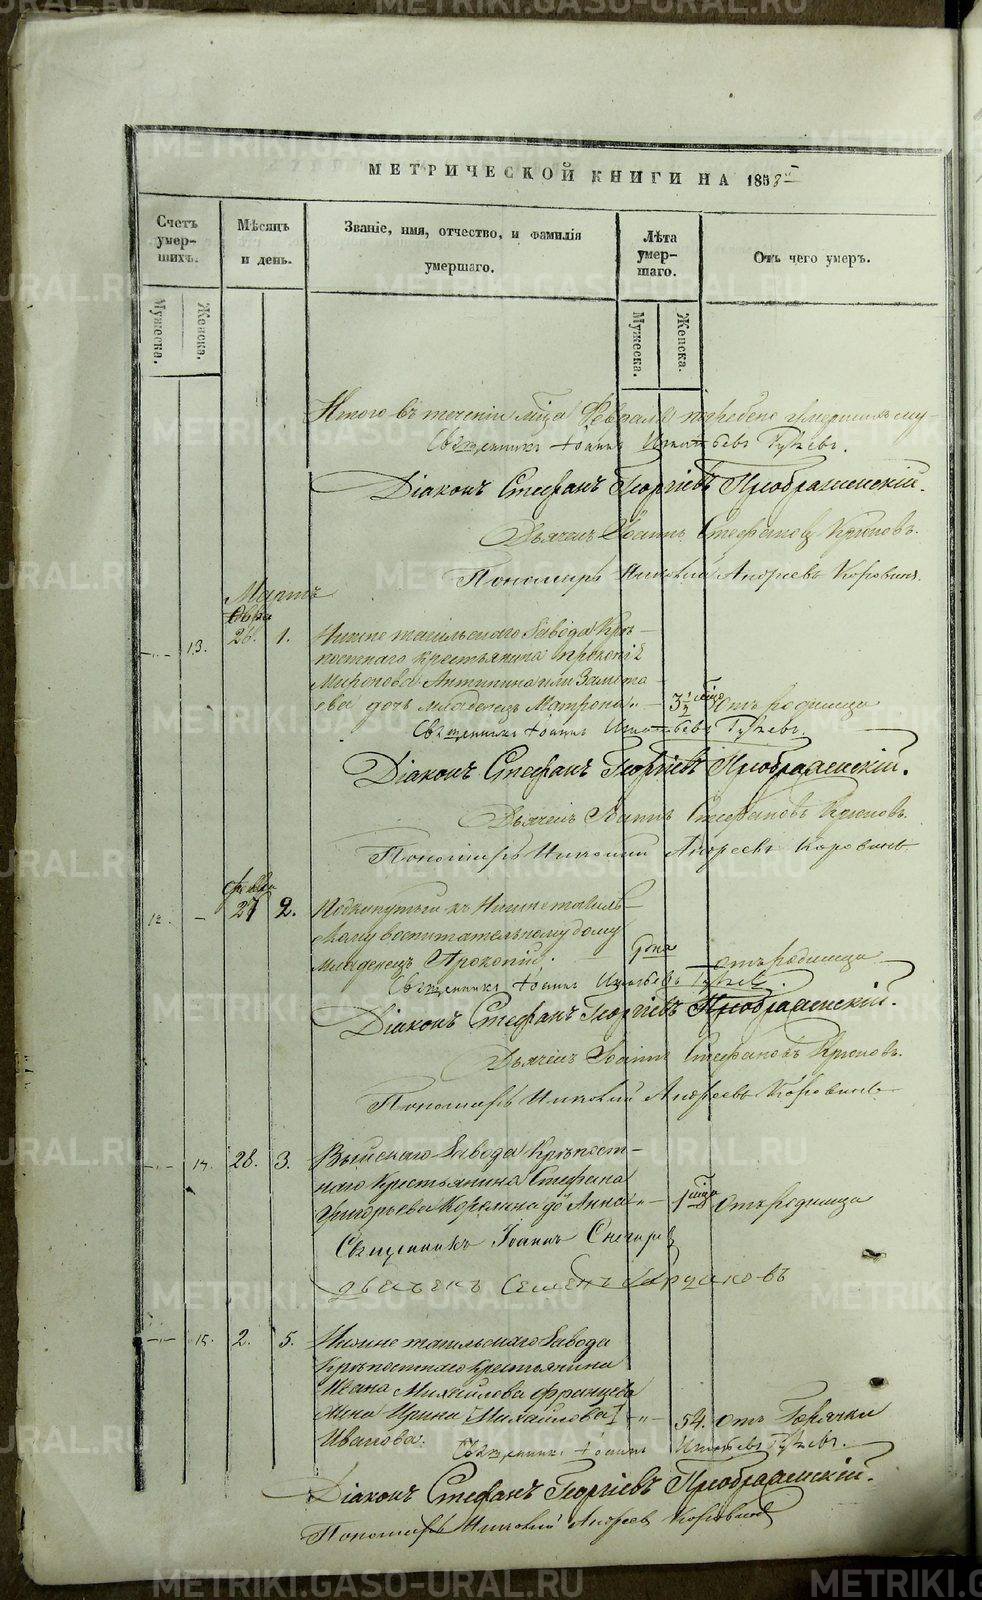 МЕТРИЧЕСКОЙ КНИГИ НА 1858 г.
Счетъ умер-шихъ.
Мужеска.
Женска.
Мѣсяцъ и день.
Званіе, имя, отчество, и фамилія умершаго.
Лѣта умер-шаго.
Мужеска.
Женска.
Отъ чего умеръ.
Итого въ теченіи мца Февраля погребено умершихъ му-
Священникъ Іоаннъ Игнатьевъ
Діаконъ Стефанъ Георгіевъ Преображенскій.
Дьячекъ Іоаннъ Стефановъ Крюковъ.
Пономарь Николай Андреевъ Коровинъ.
Мартъ
13. 26. 1. Нижнетагильскаго Завода Крѣ-
постнаго крестьянина Прокопія
Миронова Антипина или Замота-
ева дочь младенецъ Матрона „ — 3½ мца Отъ родимца
Священникъ Іоаннъ Игнатьевъ
Діаконъ Стефанъ Георгіевъ Преображенскій.
Дьячекъ Іоаннъ Стефановъ Крюковъ.
Пономарь Николай Андреевъ Коровинъ
Февра
12. — 27 2. Подкинутый къ Нижнетагиль-
скому воспитательному дому
Младенецъ Прокопій. отъ родимца
Священникъ Іоаннъ Игнатьевъ
Діаконъ Стефанъ Георгіевъ Преображенскій.
Дьячекъ Іоаннъ Стефановъ Крюковъ.
Пономарь Николай Андреевъ Коровинъ
14. 28. 3. Выйскаго Завода Крѣпост-
наго Крестьянина Стефана
Григорьева Корелина до Анна „ — 1 мца Отъ родимца
Священникъ Іоаннъ
Дьячекъ Семенъ
15. 2. 5. Нижнетагильскаго Завода
Крѣпостнаго Крестьянина
Ивана Михайлова
Жена Ирина [Михайлова] — „ — 54. Отъ Горячки
Иванова.
Священникъ Іоаннъ Игнатьевъ
Діаконъ Стефанъ Георгіевъ Преображенскій.
Пономарь Николай Андреевъ Коровинъ
METRIKI.GASO-URAL.RU